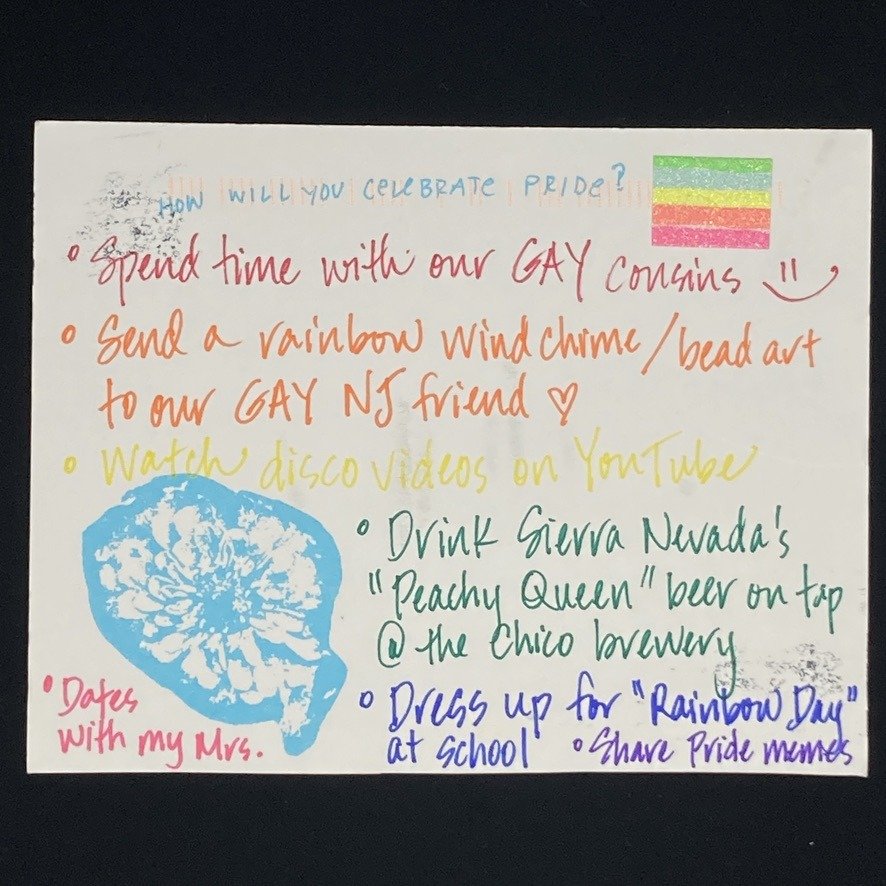 HOW WILL YOU CELEBRATE PRIDE?
• Spend time with our GAY cousins
• Send a rainbow wind chime/bead art
to our GAY NJ friend ♡
• Watch disco videos on YouTube
• Drink Sierra Nevada's
"Peachy Queen" beer on tap
@ the Chico brewery
• Dates
with my Mrs.
• Dress up for "Rainbow Day"
at school
• Share Pride memes